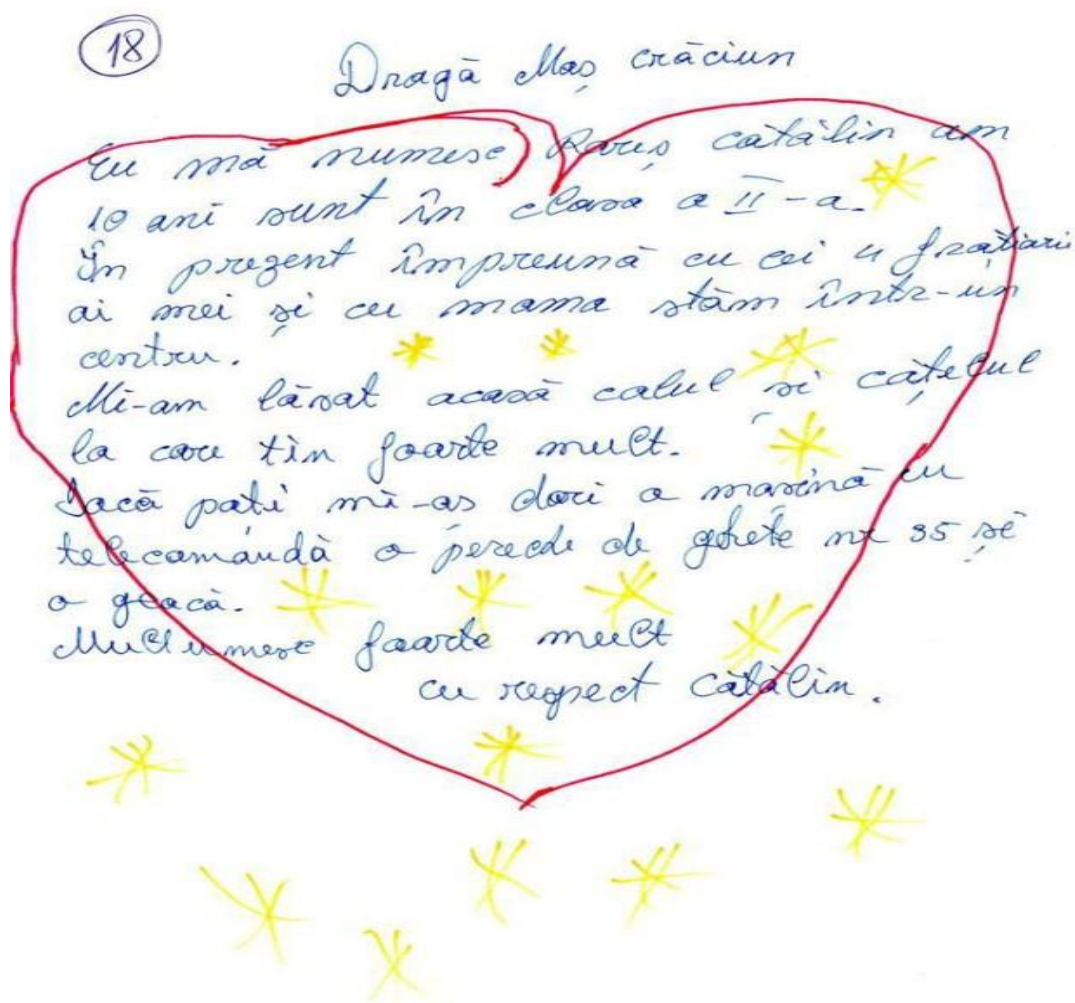 18
Dragă Moș crăciun
Eu mă numesc Rareș cătălin am
10 ani sunt în clasa a II-a.
În prezent împreună cu cei 4 frațiori
ai mei și cu mama stăm într-un
centru.
Mi-am lăsat acasă calul și cățelul
la care țin foarte mult.
Dacă poți mi-aș dori o mașină cu
telecomandă o pereche de ghete nr 35 și
o geacă.
Mulțumesc foarte mult
cu respect cătălin.